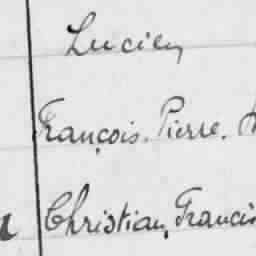 Lucien
François. Pierre.
Christian, Francis